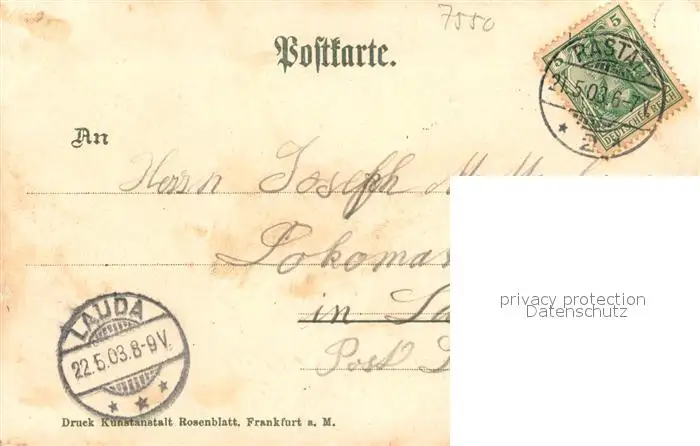 7550
Postkarte.
5
RASTAT
21.5.03.6-7
DEUTSCHES REICH
* 2 *
An
Herrn Joseph
Lokomo
in La
Post
privacy protection
Datenschutz
LAUDA
22.5.03.8-9V.
Druck Kunstanstalt Rosenblatt, Frankfurt a. M.